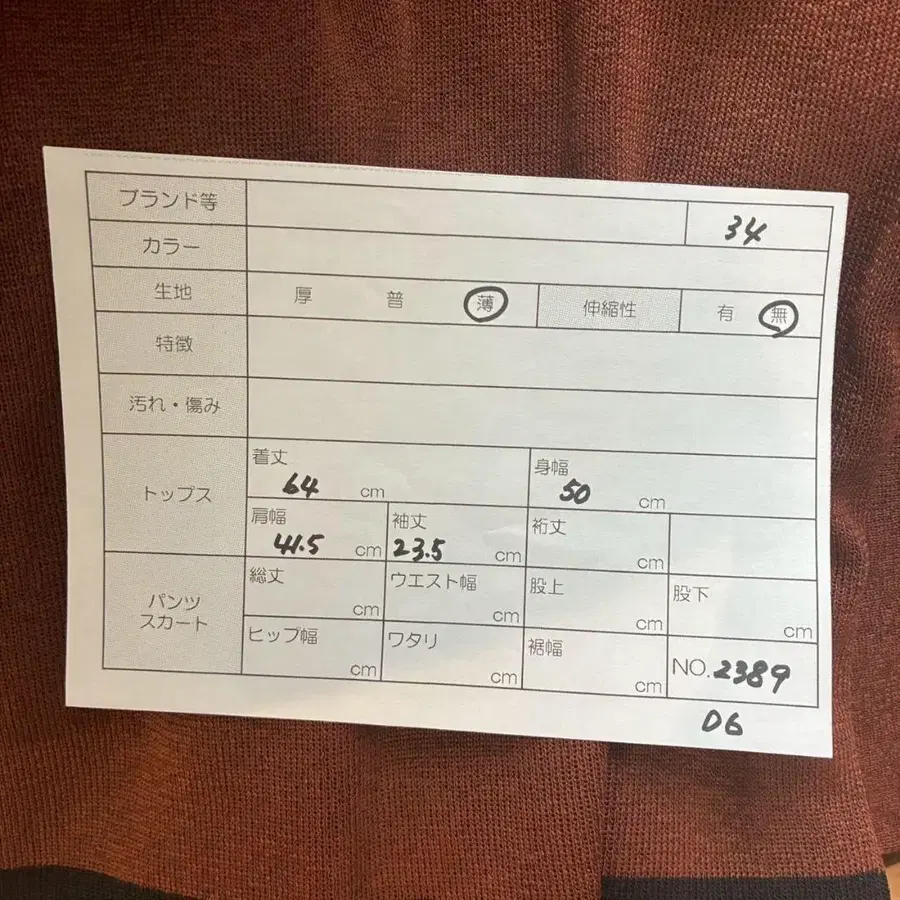 ブランド等 34
カラー
生地 厚 普 薄 伸縮性 有 無
特徴
汚れ・傷み
トップス
着丈 64 cm 身幅 50 cm
肩幅 41.5 cm 袖丈 23.5 cm 裄丈 cm
パンツ
スカート
総丈 cm ウエスト幅 cm 股上 cm 股下 cm
ヒップ幅 cm ワタリ cm 裾幅 cm NO.2389
D6